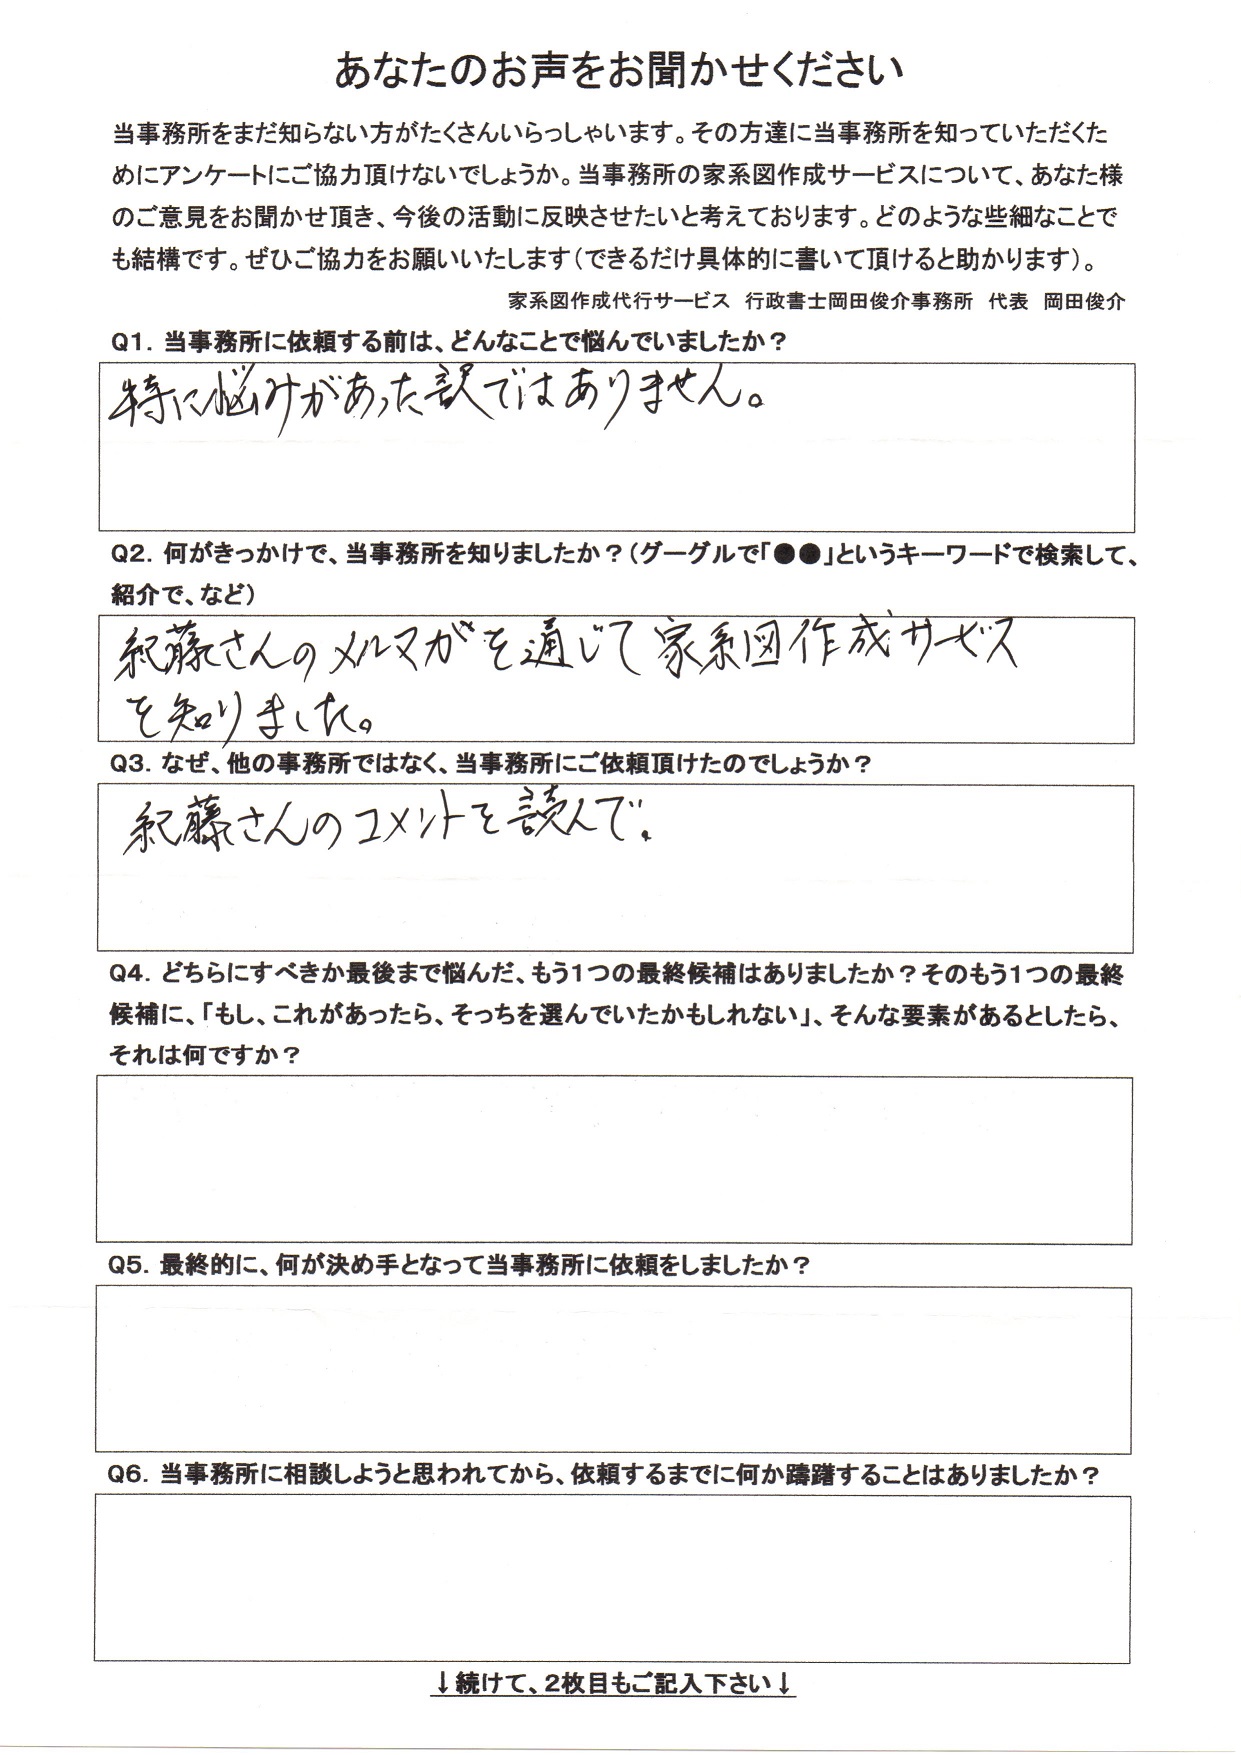 あなたのお声をお聞かせください
当事務所をまだ知らない方がたくさんいらっしゃいます。その方達に当事務所を知っていただくた
めにアンケートにご協力頂けないでしょうか。当事務所の家系図作成サービスについて、あなた様
のご意見をお聞かせ頂き、今後の活動に反映させたいと考えております。どのような些細なことで
も結構です。ぜひご協力をお願いいたします（できるだけ具体的に書いて頂けると助かります）。
家系図作成代行サービス 行政書士岡田俊介事務所 代表 岡田俊介
Q1. 当事務所に依頼する前は、どんなことで悩んでいましたか？
特に悩みがあった訳ではありません。
Q2. 何がきっかけで、当事務所を知りましたか？（グーグルで「●●」というキーワードで検索して、
紹介で、など）
紀藤さんのメルマガを通じて家系図作成サービス
を知りました。
Q3. なぜ、他の事務所ではなく、当事務所にご依頼頂けたのでしょうか？
紀藤さんのコメントを読んで。
Q4. どちらにすべきか最後まで悩んだ、もう1つの最終候補はありましたか？そのもう1つの最終
候補に、「もし、これがあったら、そっちを選んでいたかもしれない」、そんな要素があるとしたら、
それは何ですか？
Q5. 最終的に、何が決め手となって当事務所に依頼をしましたか？
Q6. 当事務所に相談しようと思われてから、依頼するまでに何か躊躇することはありましたか？
↓続けて、2枚目もご記入下さい↓